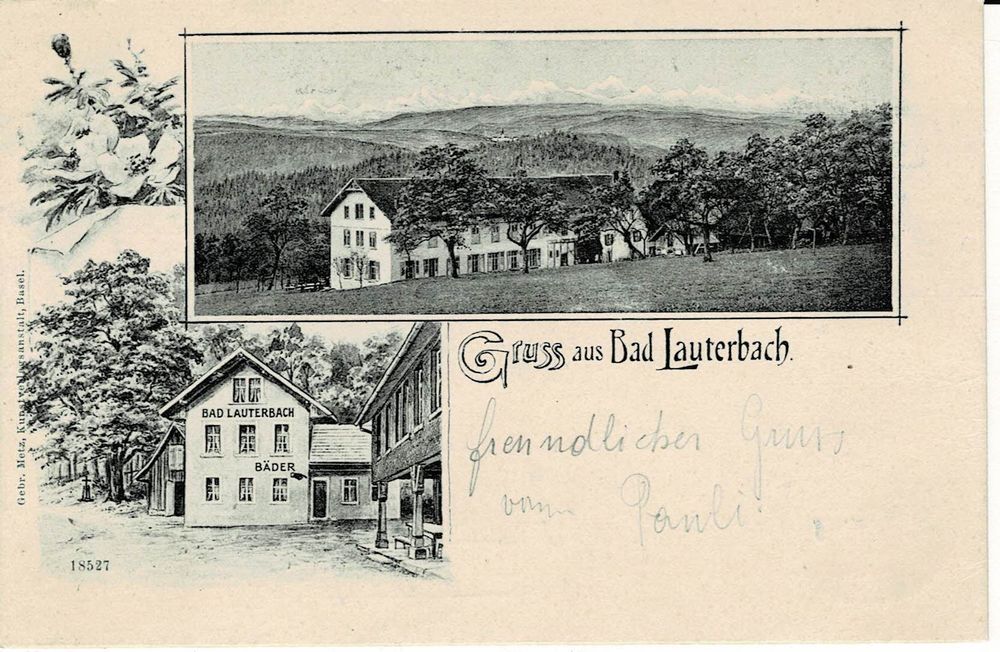 Gruss aus Bad Lauterbach.
BAD LAUTERBACH
BÄDER
freundlicher Gruss
vom Pauli
Gebr. Metz, Kunstverlagsanstalt, Basel.
18527